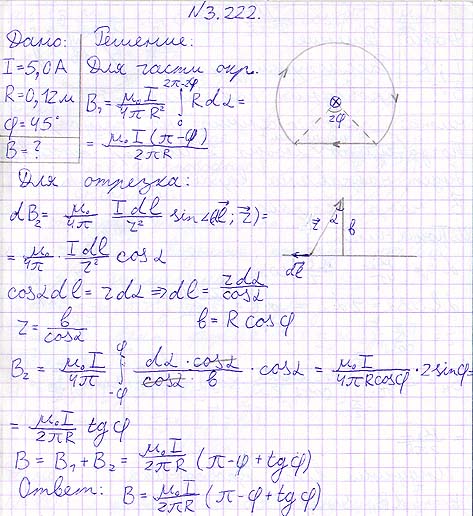 N3.222.
Дано: Решение:
I=5,0А Для части окр.
R=0,12м B₁ = μ₀I/4πR² ∫₀^(2π-2φ) R dα =
φ=45°
B=? = μ₀I(π-φ)/2πR
2φ
Для отрезка:
dB₂ = μ₀/4π I dl/r² sin∠(dl; r) =
= μ₀/4π · I dl/r² cosα
r α b
dl
cosα dl = r dα ⇒ dl = r dα/cosα
r = b/cosα b = R cosφ
B₂ = μ₀I/4π ∫₋φ^φ dα · cosα/cosα · b · cosα = μ₀I/4πR cosφ · 2 sinφ =
= μ₀I/2πR tgφ
B = B₁ + B₂ = μ₀I/2πR (π-φ+tgφ)
Ответ: B = μ₀I/2πR (π-φ+tgφ)